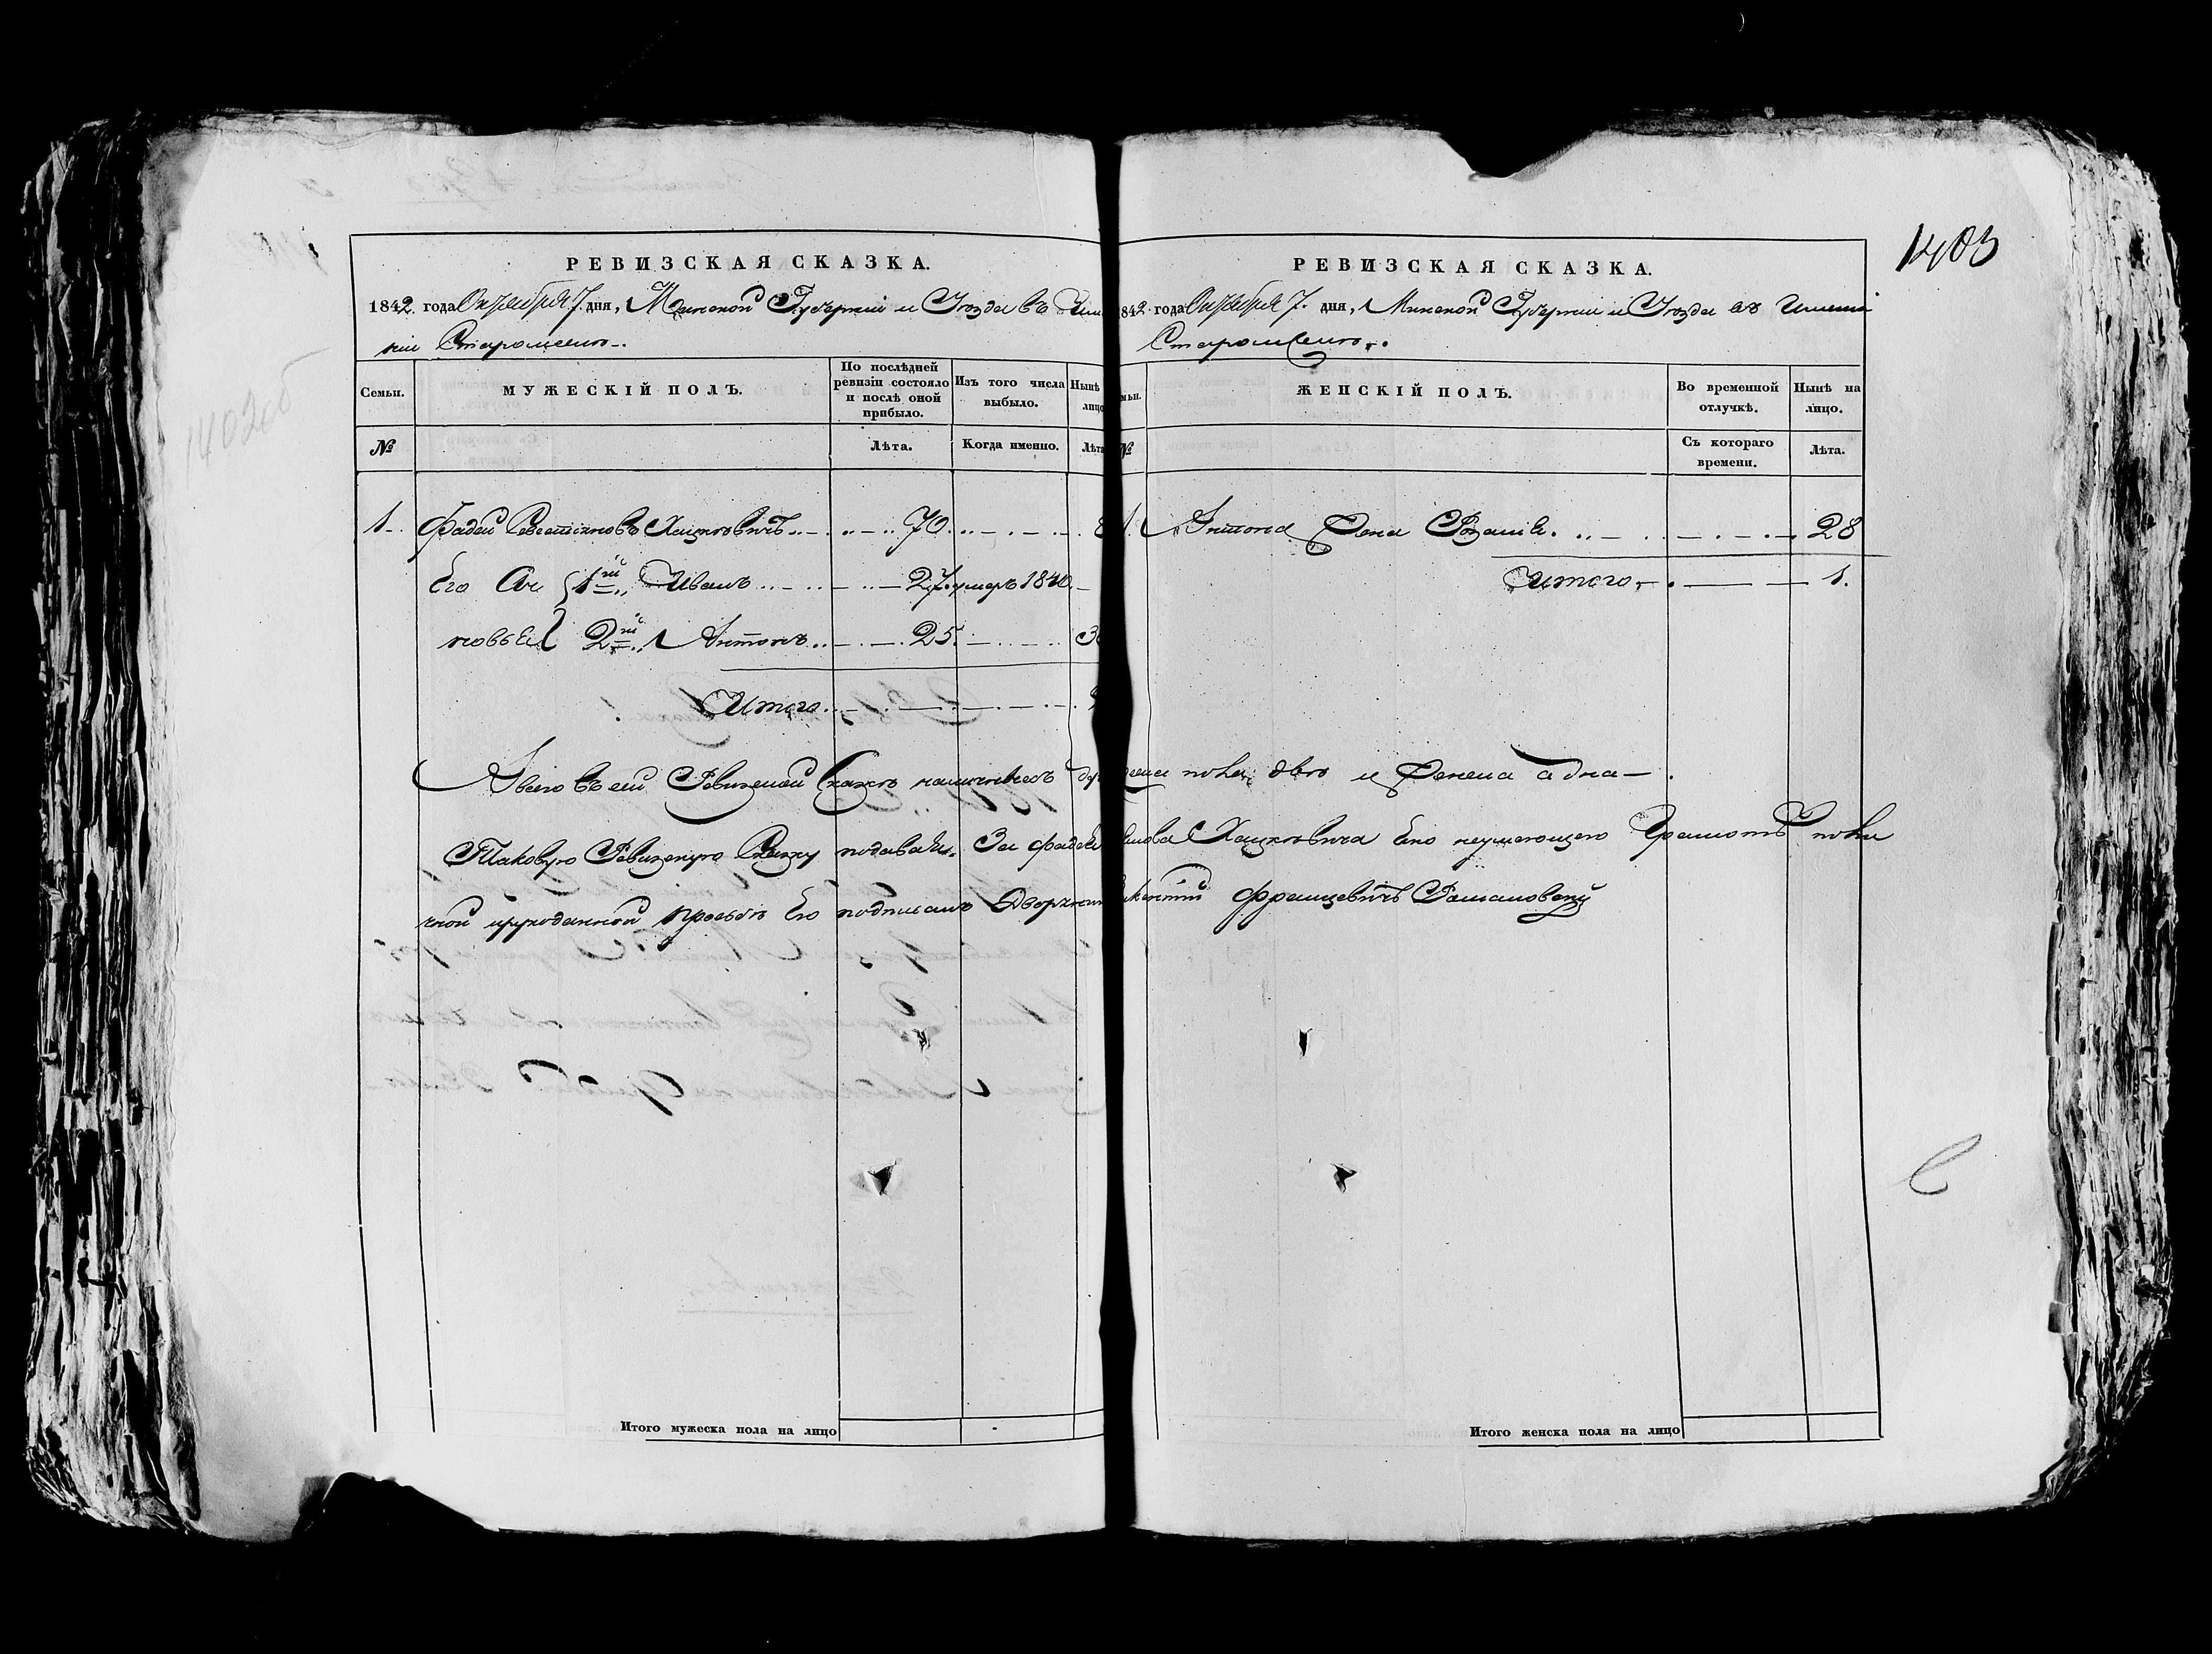 1403
1402об
РЕВИЗСКАЯ СКАЗКА.
1842. года Октября 7. дня, Минской Губерніи и Уезда въ Име
ніи Старомъ Селе.
Семьи.
МУЖЕСКІЙ ПОЛЪ.
По послѣдней ревизіи состояло и послѣ оной прибыло.
Изъ того числа выбыло.
Нынѣ лицо
№
Лѣта.
Когда именно.
Лѣта
1. Фадей Хацкевичъ 70.
Его Сы 1й Иванъ 27. умеръ 1840.
новья 2й Антонъ 25. 3
Итого
РЕВИЗСКАЯ СКАЗКА.
842. года Октября 7. дня, Минской Губерніи и Уезда въ Имени
Старомъ Селе.
мьи.
ЖЕНСКІЙ ПОЛЪ.
Во временной отлучкѣ.
Нынѣ на лицо.
№
Съ котораго времени.
Лѣта.
1. Антона Жена 28
Итого 1.
А всего въ сей Ревизской Сказке наличныхъ пола две и Женска адна
Таковую Ревизскую Скаску подавалъ. За Фадея Хацкевича его неумеющего Грамоте по
ной прозьбе его подписалъ Дворянинъ Францевичъ Романовскій
Итого мужеска пола на лицо
Итого женска пола на лицо